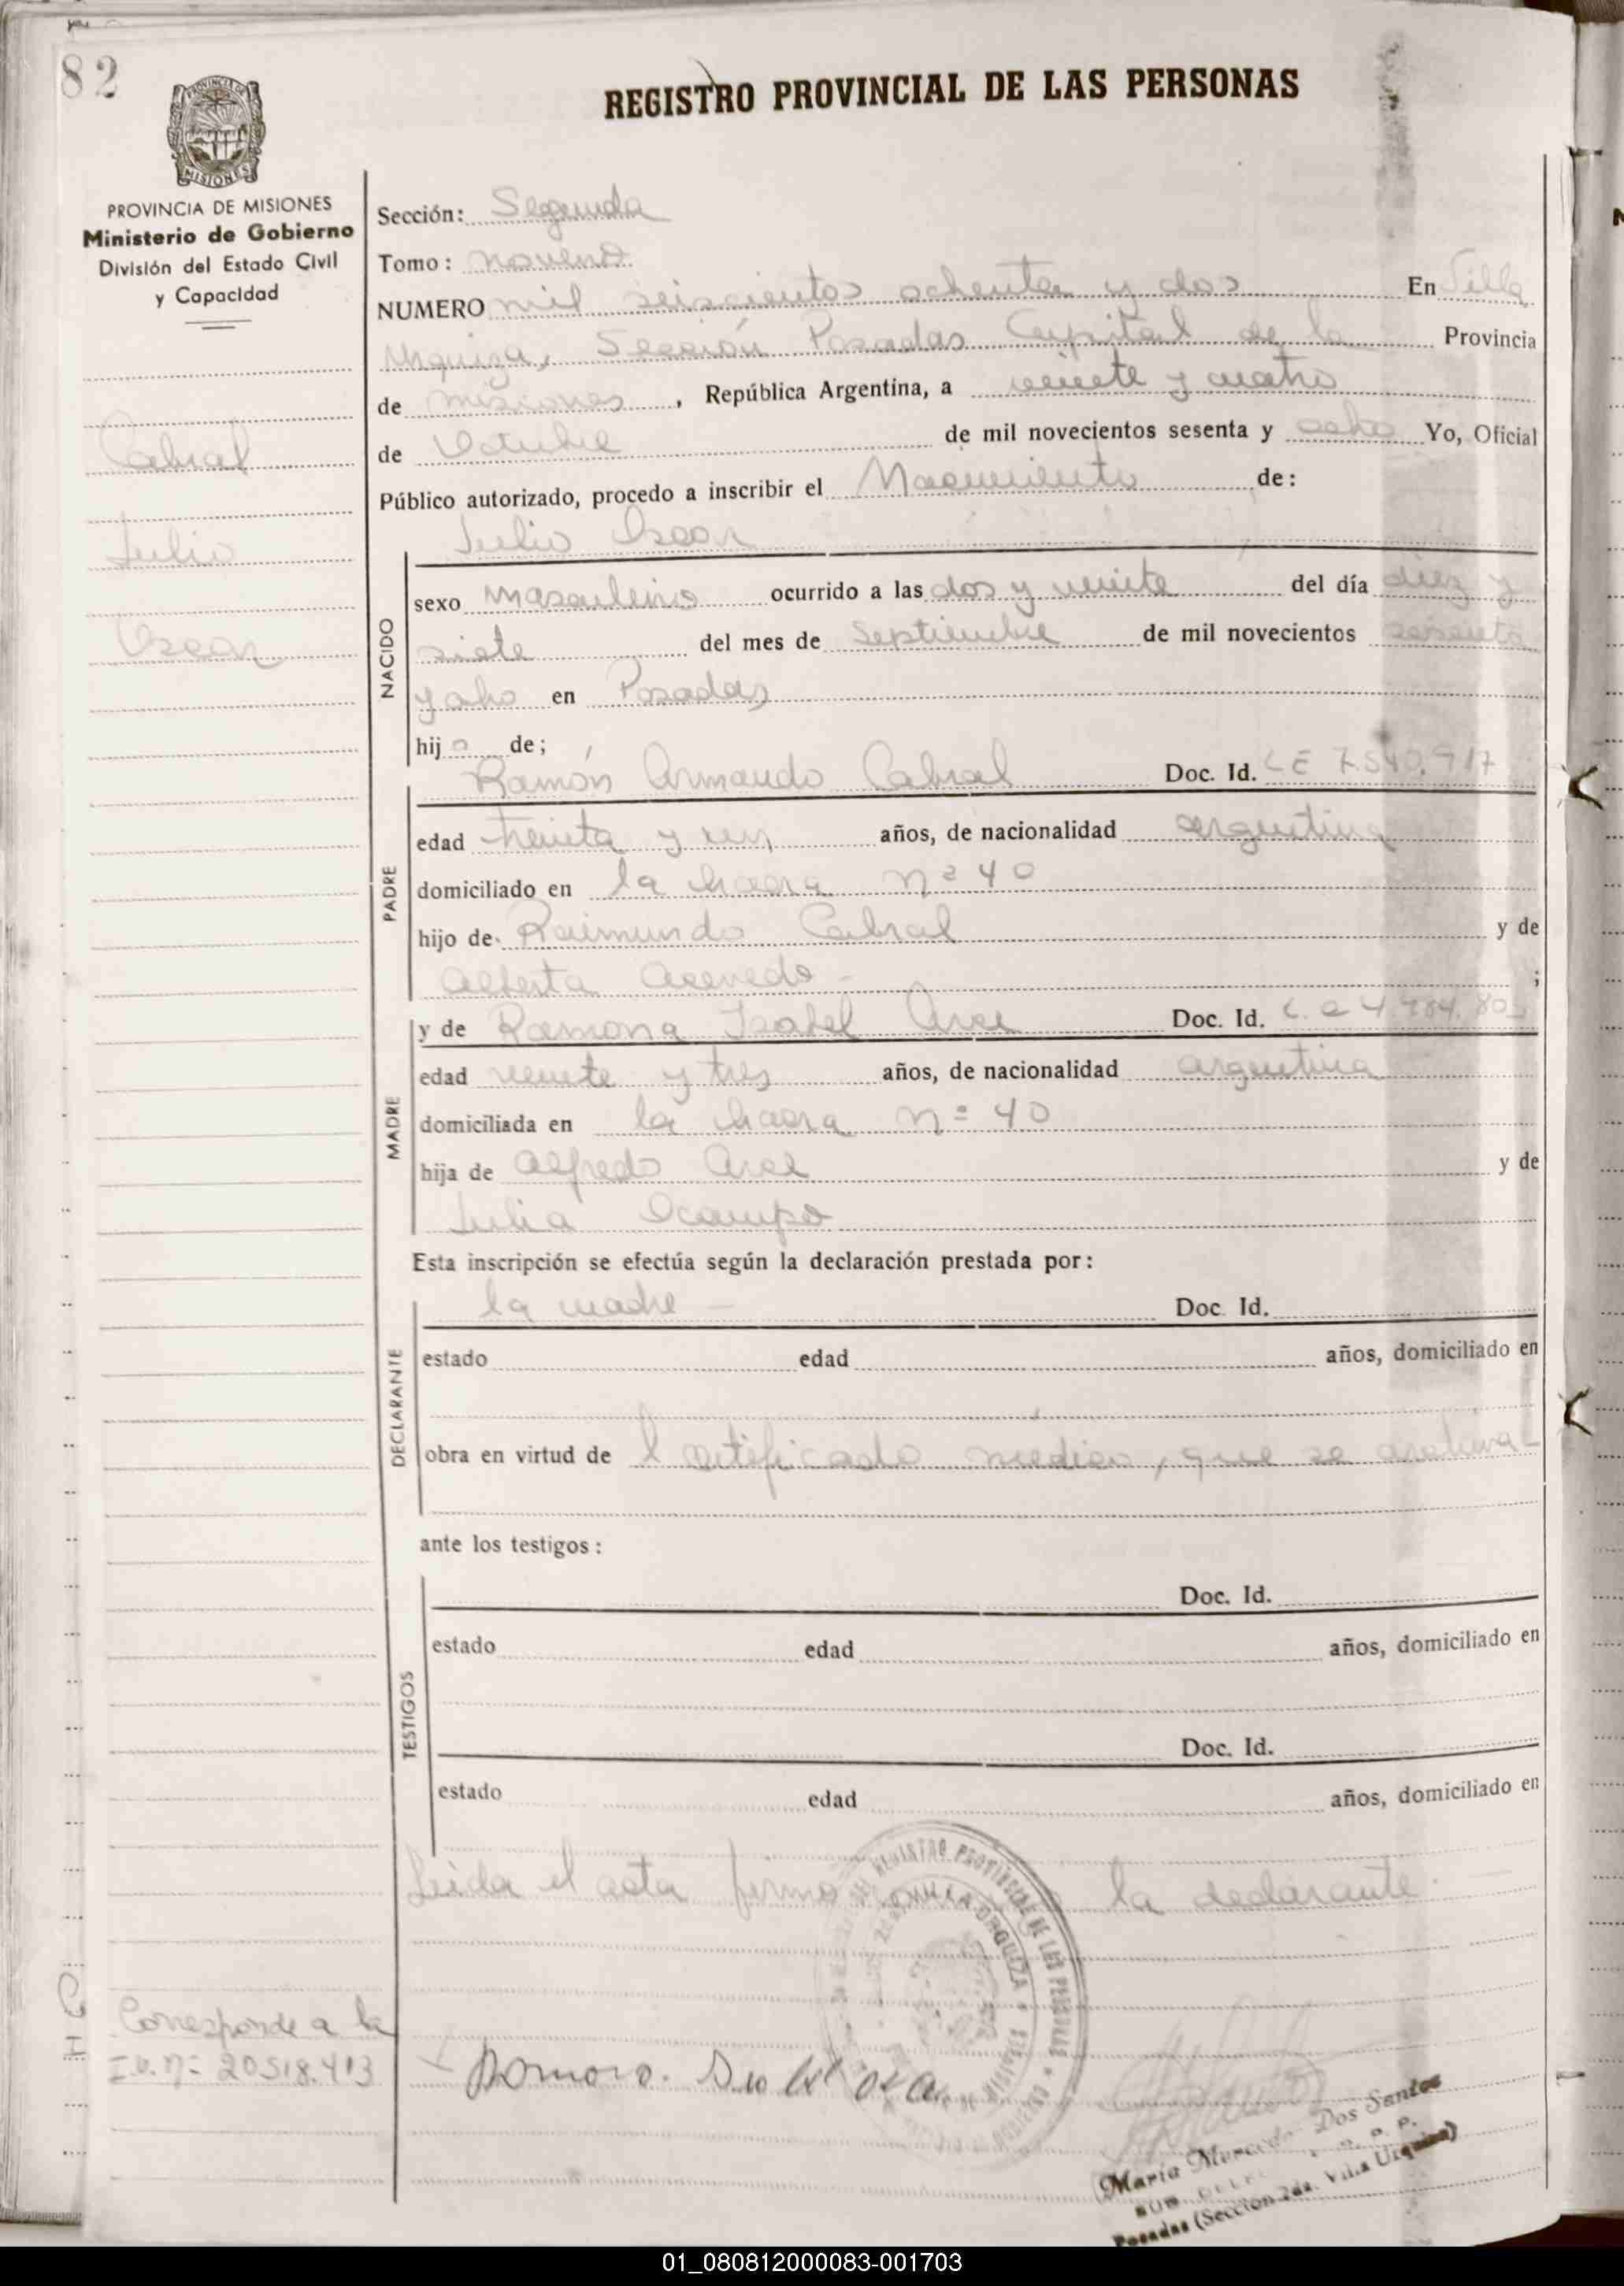 82
REGISTRO PROVINCIAL DE LAS PERSONAS
PROVINCIA DE MISIONES
Ministerio de Gobierno
División del Estado Civil
y Capacidad
Cabral
Julio
Oscar
Sección: Segunda
Tomo: noveno
NUMERO mil seiscientos ochenta y dos En Villa
Urquiza, Sección Posadas Capital de la Provincia
de misiones, República Argentina, a veinte y cuatro
de Octubre de mil novecientos sesenta y ocho Yo, Oficial
Público autorizado, procedo a inscribir el Nacimiento de:
Julio Oscar
NACIDO
sexo masculino ocurrido a las dos y veinte del día diez y
siete del mes de Septiembre de mil novecientos sesenta
y ocho en Posadas
hijo de;
Ramón Armando Cabral Doc. Id. LE 7.540.917
PADRE
edad treinta y un años, de nacionalidad argentina
domiciliado en la chacra nº 40
hijo de Raimundo Cabral y de
Alberta Acevedo - ;
MADRE
y de Ramona Isabel Arce Doc. Id.
edad veinte y tres años, de nacionalidad argentina
domiciliada en la chacra nº 40
hija de Alfredo Arce y de
Julia Ocampo
Esta inscripción se efectúa según la declaración prestada por:
DECLARANTE
la madre - Doc. Id.
estado edad años, domiciliado en
obra en virtud de l certificado médico, que se archiva-
ante los testigos:
TESTIGOS
Doc. Id.
estado edad años, domiciliado en
Doc. Id.
estado edad años, domiciliado en
Leida el acta firma la declarante.
REGISTRO PROVINCIAL DE LAS PERSONAS
VILLA URQUIZA
Corresponde a la
I.D.Nº 20518.413
María Mercedes Dos Santos
Posadas (Sección 2da. Villa Urquiza)
01_080812000083-001703